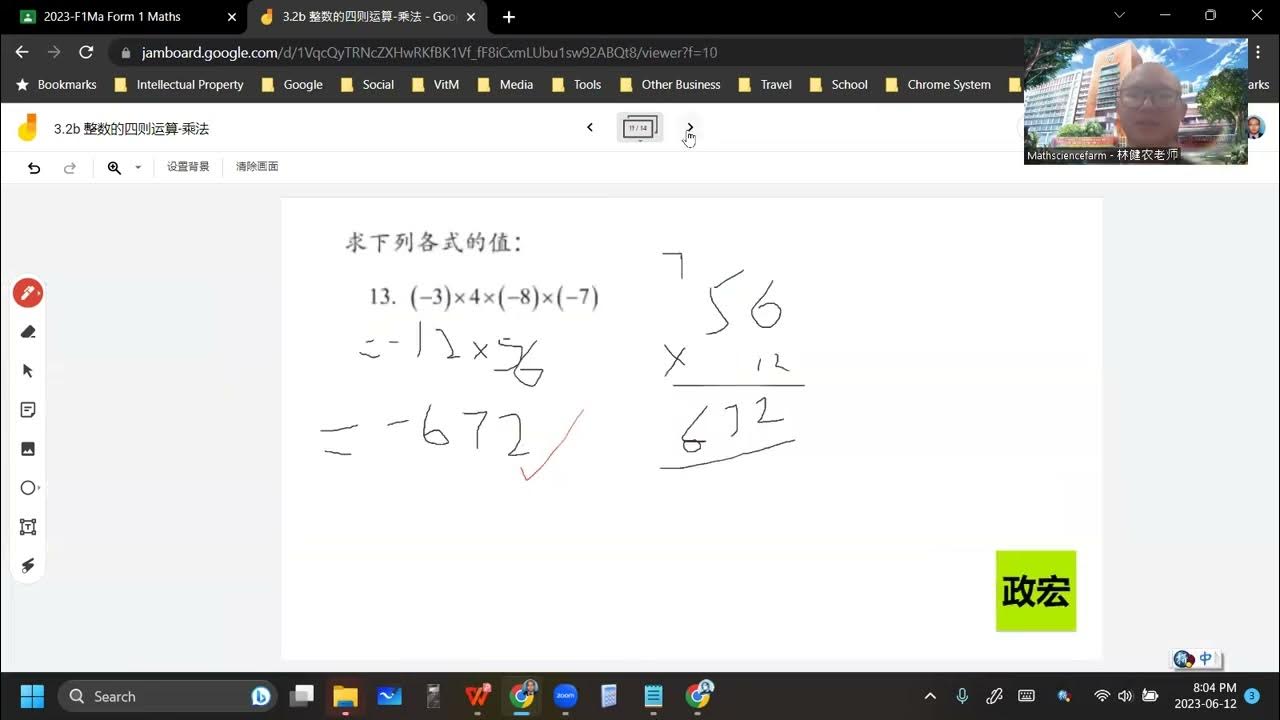 2023-F1Ma Form 1 Maths
3.2b 整数的四则运算-乘法 - Goo
jamboard.google.com/d/1VqcQyTRNcZXHwRKfBK1Vf_fF8iCxm1Ubu1sw92ABQt8/viewer?f=10
Bookmarks Intellectual Property Google VitM Media Tools Other Business Travel School Chrome System arks
3.2b 整数的四则运算-乘法
11 / 14
Mathsciencefarm - 林健农老师
设置背景 清除画面
求下列各式的值：
13. (−3)×4×(−8)×(−7)
= -12 × 56
= -672
7
56
× 12
672
政宏
中
Search
8:04 PM
2023-06-12
3